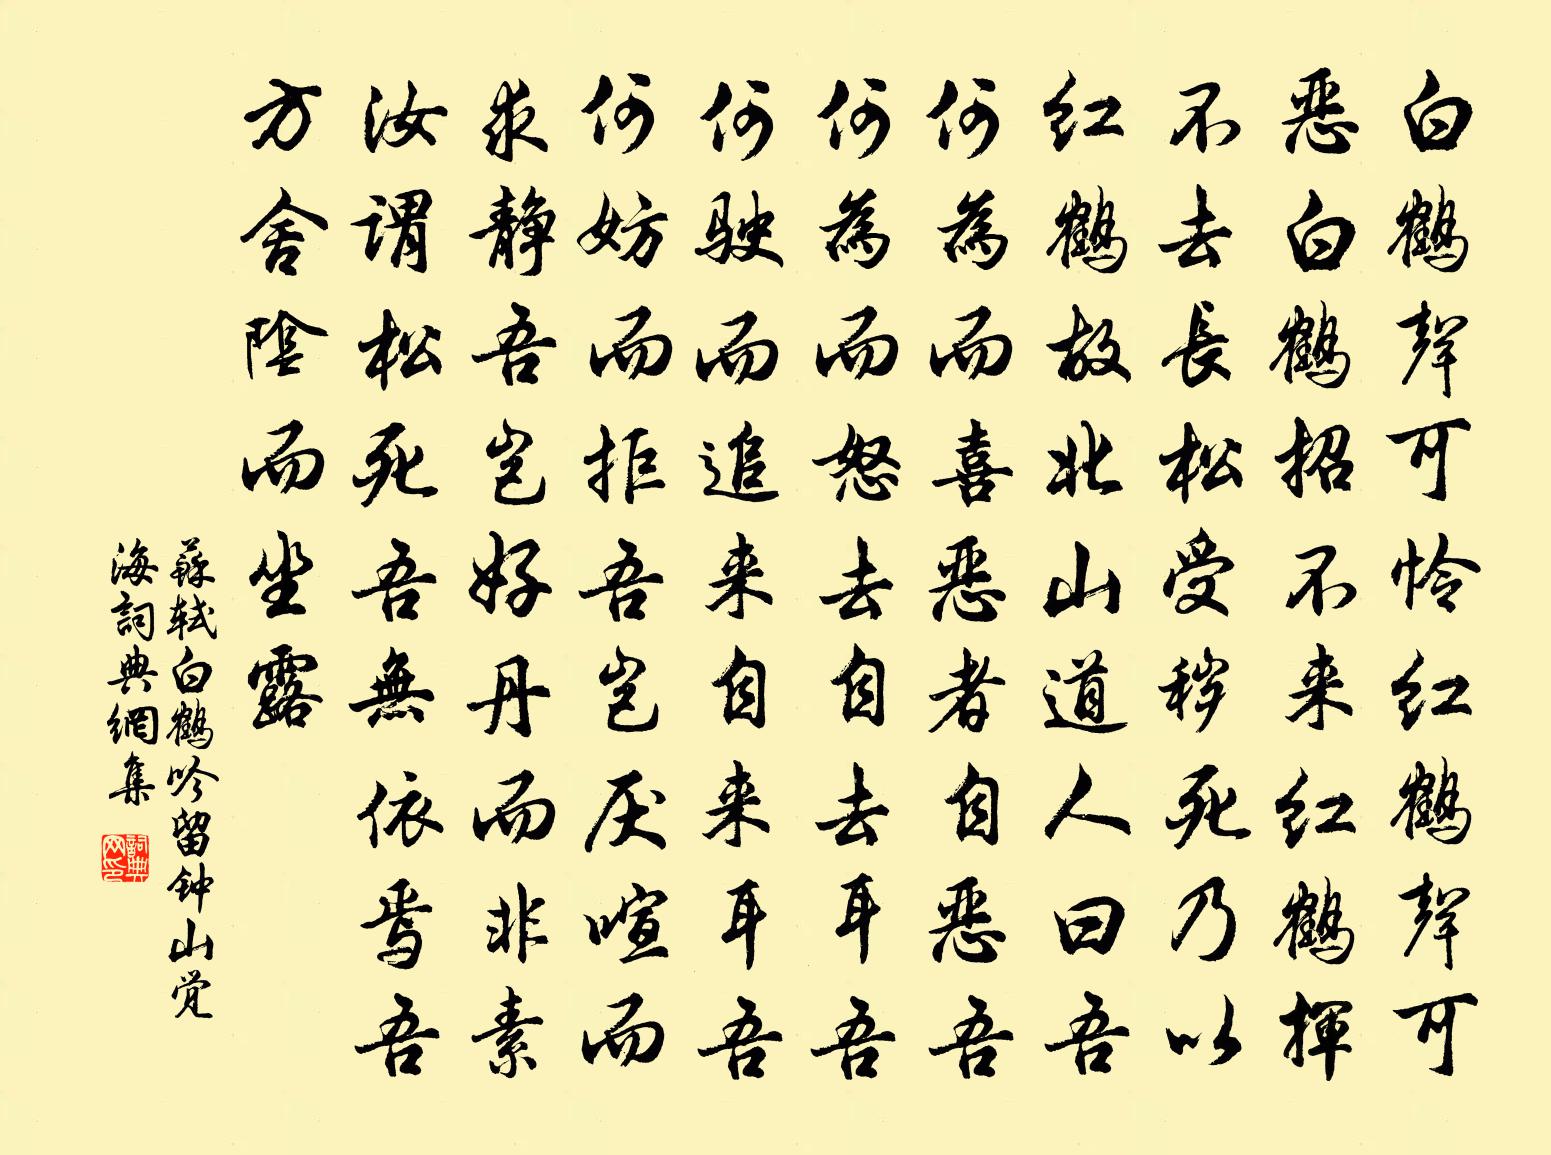 白鹤声可怜红鹤声可
恶白鹤招不来红鹤挥
不去長松受秽死乃以
红鹤故北山道人曰吾
何為而喜恶者自恶吾
何為而怒去自去耳吾
何驶而追来自来耳吾
何妨而拒吾岂厌喧而
求静吾岂好丹而非素
汝谓松死吾無依焉吾
方舍陰而坐露
蘇轼白鹤吟留钟山觉
海詞典網集
詞典网印